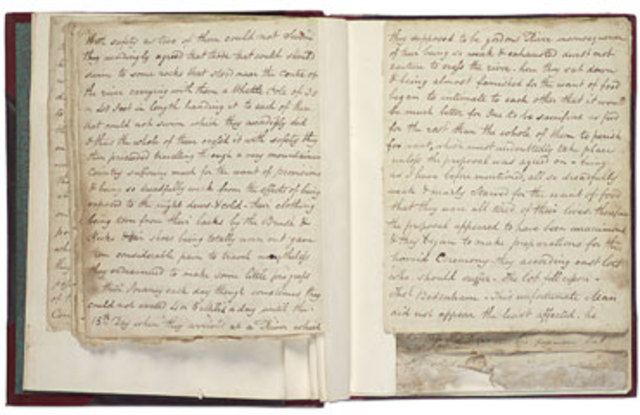 With safety as two of them could not swim
they accordingly agreed that those that could should
swim to some rocks that stood near the centre of
the river carrying with them a Wattle Pole of 30
in length handing it to each of them
that could not swim which they accordingly did
& thus the whole of them crossed it with safety they
then travelling through a very mountainous
Country suffering much for the want of provisions
& being so dreadfully weak from the effects of being
exposed to the night dews & cold. their clothing
being torn from their backs by the Brush &
Rocks their shoes being totally worn out gave
them considerable pain to travel
they endeavoured to make some little progress
their Journey each day though sometimes they
could not exceed 4 or 5 miles a day until the
15th Day when they arrived at a River which
they supposed to be Gordons River in consequence
of their being so weak & exhausted durst not
venture to cross the river. here they sat down
& being almost famished for the want of food
began to intimate to each other that it would
be much better for One to be sacrificed as food
for the rest than the whole of them to perish
for want, which must undoubtedly take place
unless the proposal was agreed on & being
as I have before mentioned, all so dreadfully
weak & nearly starved for the want of food
that they were all tired of their lives therefore
the proposal appeared to have been unanimous
& they began to make preparations for this
horrid Ceremony they according cast lots
who should suffer. The lot fell upon
Thos Bodenham. This unfortunate Man
did not appear the least affected. he